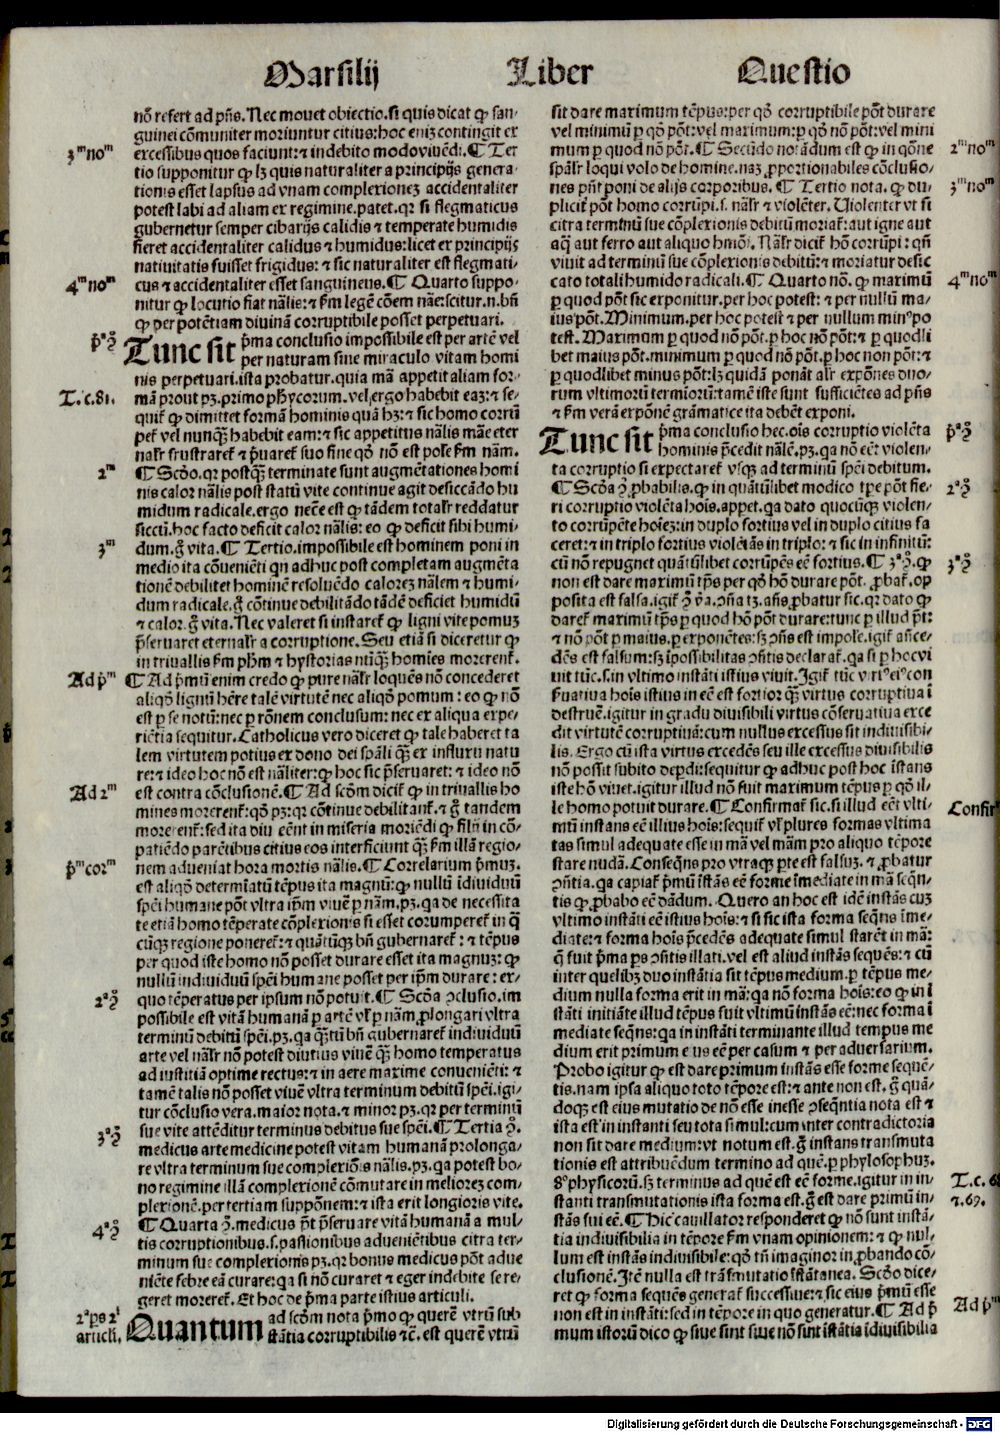 Marsilij Liber Questio
nō refert ad p̄ns. Nec mouet obiectio. si quis dicat ꝙ san⸗
guinei cōmuniter moriuntur citius: hoc eniꝫ contingit ex
ꝫᵐ noᵐ
excessibus quos faciunt: ⁊ indebito modo viuēdi. ¶ Ter
tio supponitur ꝙ lꝫ quis naturaliter a principijs genera⸗
tionis esset lapsus ad vnam complexioneꝫ accidentaliter
potest labi ad aliam ex regimine. patet. qꝛ si flegmaticus
gubernetur semper cibarijs calidis ⁊ temperate humidis
fieret accidentaliter calidus ⁊ humidus: licet ex principijs
natiuitatis fuisset frigidus: ⁊ sic naturaliter est flegmati⸗
4ᵐ noᵐ
cus ⁊ accidentaliter esset sanguineus. ¶ Quarto suppo⸗
nitur ꝙ locutio fiat nālis: ⁊ s̄m legē cōem nāe: scitur. n. bn̄
ꝙ per potētiam diuinā corruptibile posset perpetuari.
p̄ᵃ ꝯ̊
Tunc sit p̄ma conclusio impossibile est per artē vel
per naturam sine miraculo vitam homi
nis perpetuari. ista probatur. quia mā appetit aliam for⸗
T. c. 81.
mā prout pꝫ. primo phycorum. vel ergo habebit eaꝫ: ⁊ se⸗
quit̄ ꝙ dimittet formā hominis quā hꝫ: ⁊ sic homo corrū
pet̄ vel nunqꝫ habebit eam: ⁊ sic appetitus nālis māe eter
nalr̄ frustraret̄ ⁊ p̄uaret̄ suo fine qd̄ nō est pole s̄m nām.
2ᵐ
¶ Scd̄o. qꝛ postqꝫ terminate sunt augmētationes homi
nis calor nālis post statū vite continue agit desiccādo hu
midum radicale. ergo necē est ꝙ tādem totalr̄ reddatur
siccū. hoc facto deficit calor nālis: eo ꝙ deficit sibi humi⸗
ꝫᵐ
dum. ḡ vita. ¶ Tertio. impossibile est hominem poni in
medio ita cōueniēti qn adhuc post completam augmēta
tionē debilitet hominē resoluēdo calorez nālem ⁊ humi⸗
dum radicale. ḡ cōtinue debilitādo tādē deficiet humidū
⁊ calor. ḡ vita. Nec valeret si instaret̄ ꝙ ligni vite pomuꝫ
p̄seruaret eternalr̄ a corruptione. Seu etiā si diceretur ꝙ
in triuallis s̄m ph̄m ⁊ hystorias nūqꝫ homīes morerent̄.
Ad p̄ᵐ
¶ Ad p̄mū enim credo ꝙ pure nālr̄ loquēs nō concederet
aliqd̄ lignū hēre talē virtutē nec aliqd̄ pomum: eo ꝙ nō
est p se notū: nec p rōnem conclusum: nec ex aliqua expe⸗
riētia sequitur. Catholicus vero diceret ꝙ tale haberet ta
lem virtutem potius ex dono dei sp̄ali qꝫ ex influxu natu
re: ⁊ ideo hoc nō est nāliter: ꝙ hoc sic p̄seruaret: ⁊ ideo nō
Ad 2ᵐ
est contra cōclusionē. ¶ Ad scd̄m dicit̄ ꝙ in triuallis ho
mines morerent̄: qd̄ pꝫ: qꝛ cōtinue debilitant̄. ⁊ ḡ tandem
morerent̄: sed ita diu eēnt in miseria moriēdi ꝙ filij in cō⸗
patiēdo parētibus citius eos interficiunt qꝫ s̄m illā regio⸗
p̄ᵐ corᵐ
nem adueniat hora mortis nālis. ¶ Correlarium p̄muꝫ.
est aliqd̄ determīatū tēpus ita magnū: ꝙ nullū īdiuiduū
sp̄ei humane pōt vltra ip̄m viuē p nām. pꝫ. qa de necessita
te etiā homo tēperate cōplexionis si esset corumperet̄ in q̄
cūqꝫ regione poneret̄: ⁊ quātūqꝫ bn̄ gubernaret̄: ⁊ tēpus
per quod iste homo nō posset durare esset ita magnuꝫ: ꝙ
nullū indiuiduū sp̄ei humane posset per ip̄m durare: ex⸗
2ᵃ ꝯ̊
quo tēperatus per ipsum nō potuit. ¶ Scd̄a ꝯclusio. im
possibile est vitā humanā p artē vl̄ p nām ꝓlongari vltra
terminū debitū sp̄ei. pꝫ. qa qꝫtūcū bn̄ gubernaret̄ indiuiduū
arte vel nālr̄ nō potest diutius viuē qꝫ homo temperatus
ad iustitiā optime rectus: ⁊ in aere maxime conueniēti: ⁊
tamē talis nō posset viuē vltra terminum debitū sp̄ei. igi⸗
tur cōclusio vera. maior nota. ⁊ minor pꝫ. qꝛ per terminū
ꝫᵃ ꝯ̊
sue vite attēditur terminus debitus sue sp̄ei. ¶ Tertia ꝯ̊.
medicus arte medicine potest vitam humanā prolonga⸗
re vltra terminum sue complexiōis nālis. pꝫ. qa potest bo⸗
no regimine illā complexionē cōmutare in meliorez com⸗
plexionē. per tertiam supponē̄m: ⁊ ista erit longioris vite.
4ᵃ ꝯ̊
¶ Quarta ꝯ̊. medicus p̄t p̄seruare vitā humanā a mul⸗
tis corruptionibus. s. passionibus adueniētibus citra ter⸗
minum sue complexionis pꝫ. qꝛ bonus medicus pōt adue
niēte febre eā curare: qa si nō curaret ⁊ eger indebite se re⸗
geret moreret̄. Et hoc de p̄ma parte istius articuli.
2ᵃ ps 2ⁱ
articli.
Quantum ad scd̄m nota p̄mo ꝙ querē vtrū sub
stātia corruptibilis ⁊c̄. est querē vtrū
sit dare maximum tēpus: per qd̄ corruptibile pōt durare
vel minimū p qd̄ pōt: vel maximum: p qd̄ nō pōt: vel mini
2ᵐ noᵐ
mum p quod nō pōt. ¶ Secūdo notādum est ꝙ in qōne
sp̄alr̄ loqui volo de homine. naꝫ ꝓportionabiles cōclusio⸗
ꝫᵐ noᵐ
nes pn̄t poni de alijs corporibus. ¶ Tertio nota. ꝙ du⸗
plicit̄ pōt homo corrūpi. s. nālr̄ ⁊ violēter. Violenter vt si
citra terminū sue cōplexionis debitū moriat̄: aut igne aut
aq̄ aut ferro aut aliquo hmōi. Nālr̄ dicit̄ hō corrūpi: qn̄
viuit ad terminū sue cōplexionis debitū: ⁊ moriatur desic
4ᵐ noᵐ
cato totali humido radicali. ¶ Quarto nō. ꝙ maximū
p quod pōt sic exponitur. per hoc potest: ⁊ per nullū ma⸗
ius pōt. Minimum. per hoc potest ⁊ per nullum minꝰ po
test. Maximum p quod nōn pōt. p hoc nō pōt: ⁊ p quodli
bet maius pōt. minimum p quod nō pōt. p hoc non pōt: ⁊
p quodlibet minus pōt: lꝫ quidā ponāt alr̄ expōnes duo⸗
rum vltimorū termiorū: tamē iste sunt sufficiētes ad p̄ns
⁊ s̄m verā expōnē grāmatice ita debēt exponi.
p̄ᵃ ꝯ̊
Tunc sit p̄ma conclusio hec. oīs corruptio violēta
hominis p̄cedit nālē. pꝫ. qa nō eēt violen⸗
ta corruptio si expectaret̄ vsqꝫ ad terminū sp̄ei debitum.
2ᵃ ꝯ̊
¶ Scd̄a ꝯ̊ ꝓbabilis. ꝙ in quātūlibet modico tpe pōt fie⸗
ri corruptio violēta hoīs. appet. qa dato quocūqꝫ violen⸗
to corrūpēte hoīez: in duplo fortius vel in duplo citius fa
ceret: ⁊ in triplo fortius violētās in triplo: ⁊ sic in infinitū:
ꝫᵃ ꝯ̊
cū nō repugnet quātūlibet corrūpēs eē fortius. ¶ ꝫᵃ ꝯ̊. ꝙ
non est dare maximū tp̄s per qd̄ hō durare pōt. ꝓbat̄. op
posita est falsa. igit̄ ꝯ̊ v̄a. ꝯn̄a tꝫ. an̄s ꝓbatur sic. qꝛ dato ꝙ
daret̄ maximū tp̄s p quod hō pōt durare: tunc p illud p̄t:
⁊ nō pōt p maius. p exponētes: sꝫ ꝯn̄s est impole. igit̄ an̄ce⸗
dēs est falsum: sꝫ īpossibilitas ꝯn̄tis declarat̄. qa si p hoc vi
uit tūc. s. in vltimo instāti istius viuit. Igit̄ tūc virtꝰ eiꝰ con
seruatiua hoīs istius in eē est fortior qꝫ virtus corruptiua ī
destruē. igitur in gradu diuisibili virtus cōseruatiua exce
dit virtutē corruptiuā: cum nullus excessus sit indiuisibi⸗
lis. Ergo cū ista virtus excedēs seu ille excessus diuisibilis
nō possit subito deꝑdi: sequitur ꝙ adhuc post hoc īstans
iste hō viuet. igitur illud nō fuit maximum tēpus p qd̄ il⸗
Confir
le homo potuit durare. ¶ Confirmat̄ sic. si illud eēt vlti⸗
mū instans eē illius hoīs: sequit̄ vl̄ plures formas vltima
tas simul adequate esse in mā vel mām pro aliquo tēpore
stare nudā. Conseqn̄s pro vtraqꝫ pte est falsuꝫ. ⁊ ꝓbatur
ꝯn̄tia. qa capiat̄ p̄mū īstās eē forme īmediate in mā seqn̄⸗
tis ꝙ ꝓbabo eē dādum. Quero an hoc est idē instās cuꝫ
vltimo instāti eē istius hoīs: ⁊ si sic ista forma seqn̄s īme⸗
diate: ⁊ forma hoīs p̄cedēs adequate simul starēt in mā:
q̄ fuit p̄ma ps ꝯn̄tis illati. vel est aliud instās sequēs: ⁊ cū
inter quelibꝫ duo instātia sit tēpus medium. p tēpus me⸗
dium nulla forma erit in mā: qa nō forma hoīs: eo ꝙ in ī
stāti initiāte illud tēpus fuit vltimū instās eē: nec forma ī
mediate seqn̄s: qa in instāti terminante illud tempus me
dium erit primum eius eē per casum ⁊ per aduersarium.
Probo igitur ꝙ est dare primum instās esse forme sequē⸗
tis. nam ipsa aliquo toto tēpore est: ⁊ ante non est. ḡ quā⸗
doqꝫ est eius mutatio de nō esse inesse ꝯseqn̄tia nota est ⁊
ista est in instanti seu tota simul: cum inter contradictoria
non sit dare medium: vt notum est. ḡ instans transmuta
tionis est attribuēdum termino ad quē. p phylosophuꝫ.
T. c. 68
8º physicorū. sꝫ terminus ad quē est eē forme. igitur in in⸗
⁊. 69.
stanti transmutationis ista forma est. ḡ est dare primū in⸗
stās sui eē. ¶ Hic cauillator responderet ꝙ nō sunt instā⸗
tia indiuisibilia in tēpore s̄m vnam opinionem: ⁊ ꝙ nul⸗
lum est instās indiuisibile: qd̄ tn̄ imaginor in ꝓbando cō⸗
clusionē. Itē nulla est trāsmutatio īstātanea. Scd̄o dice⸗
ret ꝙ forma sequēs generat̄ successiue: ⁊ sic eius p̄mū esse
Ad p̄ᵐ
non est in instāti: sed in tēpore in quo generatur. ¶ Ad p̄
mum istorū dico ꝙ siue sint siue nō sint īstātia īdiuisibilia
Digitalisierung gefördert durch die Deutsche Forschungsgemeinschaft - DFG